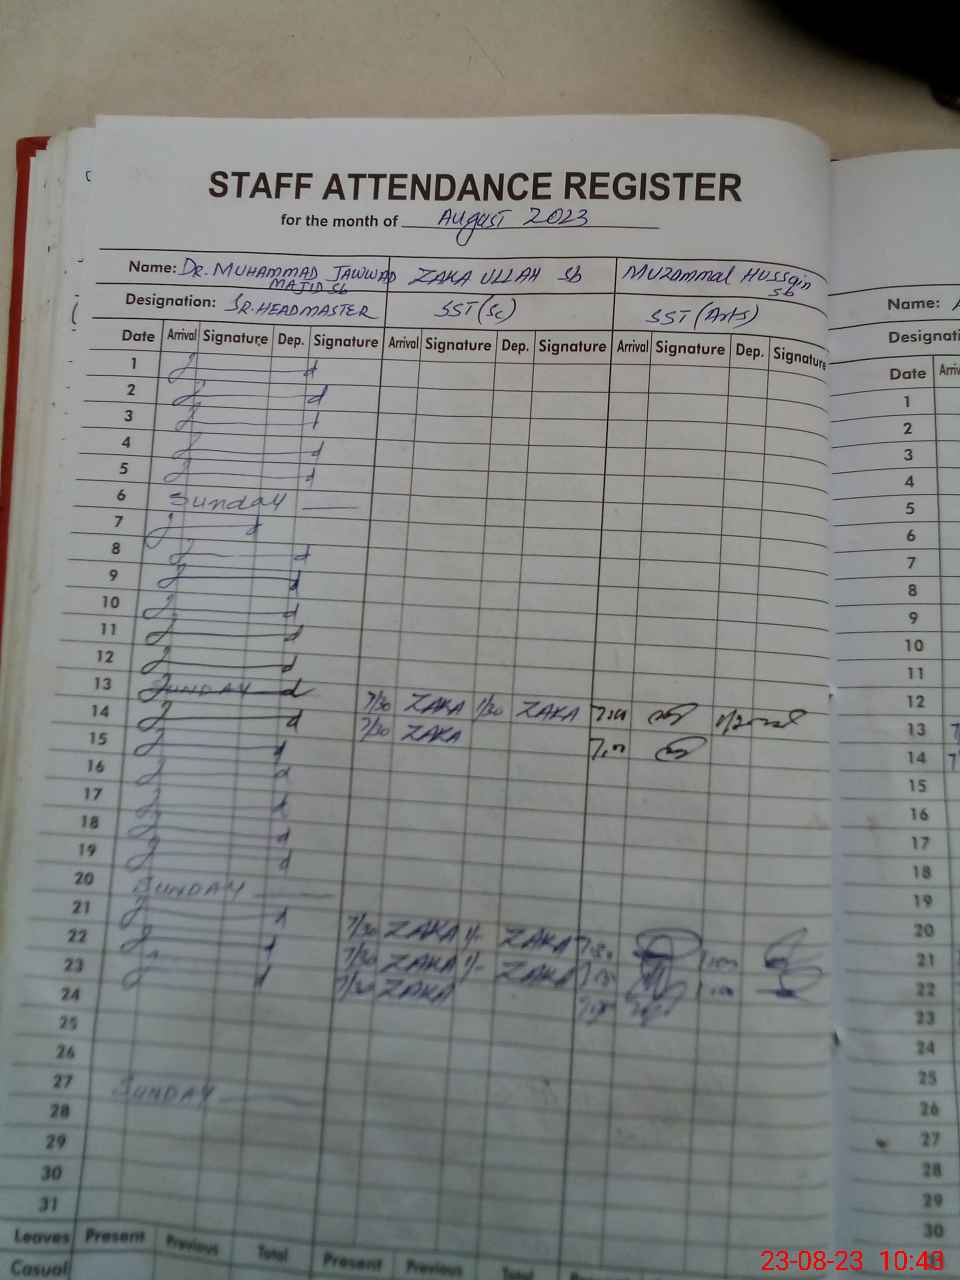 STAFF ATTENDANCE REGISTER
for the month of August 2023
Name: DR. MUHAMMAD JAWWAD MAJID Sb ZAKA ULLAH Sb Muzammal Hussain Sb
Designation: SR. HEADMASTER SST (Sc) SST (Arts)
Date Arrival Signature Dep. Signature Arrival Signature Dep. Signature Arrival Signature Dep. Signature
1
2
3
4
5
6 Sunday
7
8
9
10
11
12
13 SUNDAY
14 7/30 ZAKA 1/30 ZAKA
15 7/30 ZAKA
16
17
18
19
20 SUNDAY
21
22 7/30 ZAKA 1/- ZAKA
23 7/30 ZAKA 1/- ZAKA
24 7/30 ZAKA
25
26
27 SUNDAY
28
29
30
31
Leaves Present Previous Total Present Previous Total Present
Casual
Name:
Designati
Date Arri
1
2
3
4
5
6
7
8
9
10
11
12
13
14
15
16
17
18
19
20
21
22
23
24
25
26
27
28
29
30
23-08-23 10:43